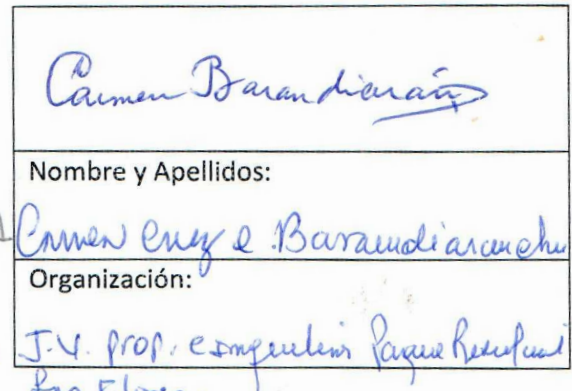 Carmen Barandiarán
Nombre y Apellidos:
Carmen Cruz e Barandiaran
Organización:
J.V. prop. e inquilinos Parque Residencial